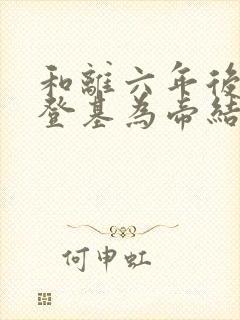 和離六年後
登基為帝結
何申虹